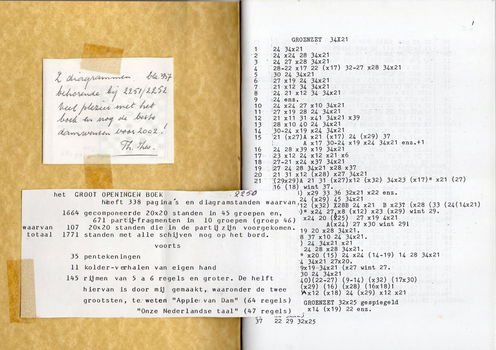 2 diagrammen blz 357
behorende bij 2251/2252
veel plezier met het
boek en nog de beste
damwensen voor 2002!
Th. 
het GROOT OPENINGEN BOEK 2250
heeft 338 pagina's en diagramstanden waarvan
1664 gecomponeerde 20x20 standen in 45 groepen en.
671 partij-fragmenten in 10 groepen (groep 46)
waarvan 107 20x20 standen die in de partij zijn voorgekomen.
totaal 1771 standen met alle schijven nog op het bord.
voorts
35 pentekeningen
11 kolder-verhalen van eigen hand
145 rijmen van 5 a 6 regels en groter. De helft
hiervan is door mij gemaakt, waaronder de twee
grootsten, te weten "Appie van Dam" (64 regels)
"Onze Nederlandse taal" (47 regels)
1
GROENZET 34X21
1 24 34x21
2 24 x24 28 34x21
3 24 27 x28 34x21
4 28-22 x17 22 (x17) 32-27 x28 34x21
5 30 24 34x21
6 27 x19 24 34x21
7 21 x12 34 34x21
8 24 21 x12 34 34x21
9 24 ens.
10 x24 27 x10 34x21
11 27 x19 28 34x21
12 21 x11 31 x41 34x21 x39
13 28 x10 40 24 34x21
14 30-24 x19 x24 34x21
15 21 (x27)A x21 (x17) 24 (x29) 37
A x17 30-24 x19 x24 34x21 ens.+1
16 24 28 x39 x19 34x21
17 23 x12 24 x12 x21 x6
18 27-21 x24 x37 34x21
19 27 24 28 34x21 x28 x37
20 21 31 x12 (x28) x27 34x21
21 (29x29)A 21 31 (x27)x12 (x32) 34x23 (x17)* x21 (27)
16 (18) wint 37.
) x29 33 36 32x21 x22 ens.
24 (x29) 45 34x21
12 (x32) X28B 24 x21 B x23† (x28 (33 (24(14x21)
)* x24 27 x8 (x12) x23 (x29) wint 29.
x24 20 (25) 27 x19 4x21
A(x24) 27 x30 wint 29)
19 20 x28 34x21.
8 37 x10 24 34x21.
) 24 34x21 x21
24 28 x28 34x21.
* x20 (15) 24 x24 (14-19) 14 28 34x21
4 34x21 27x20.
9x19 34x21 (x27 wint 27.
30 24 34x21
40)(22-27) (9-14) (x32) (17x30)
(x29) (16) (x28) (16x18)1
)*x12 (x18) 24 (x29) x12 x21
GROENZET 32x25 gespiegeld
x14 (x19) 22 ens.
37 22 29 32x25